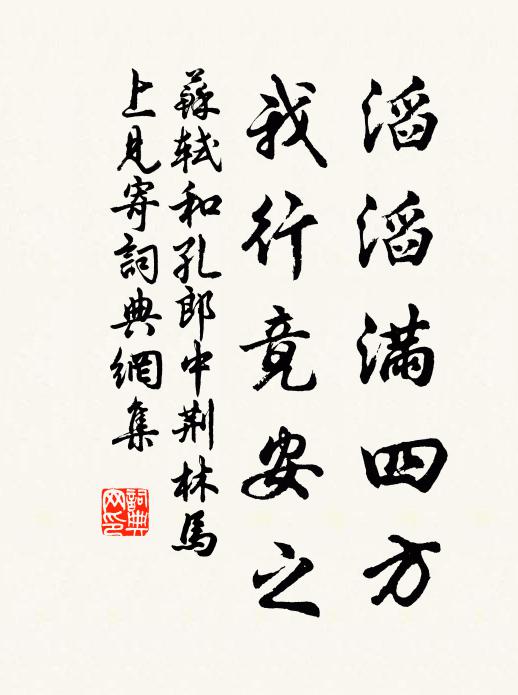 滔滔滿四方
我行竟安之
蘇軾和孔郎中荆林馬
上見寄詞典網集
詞典网印